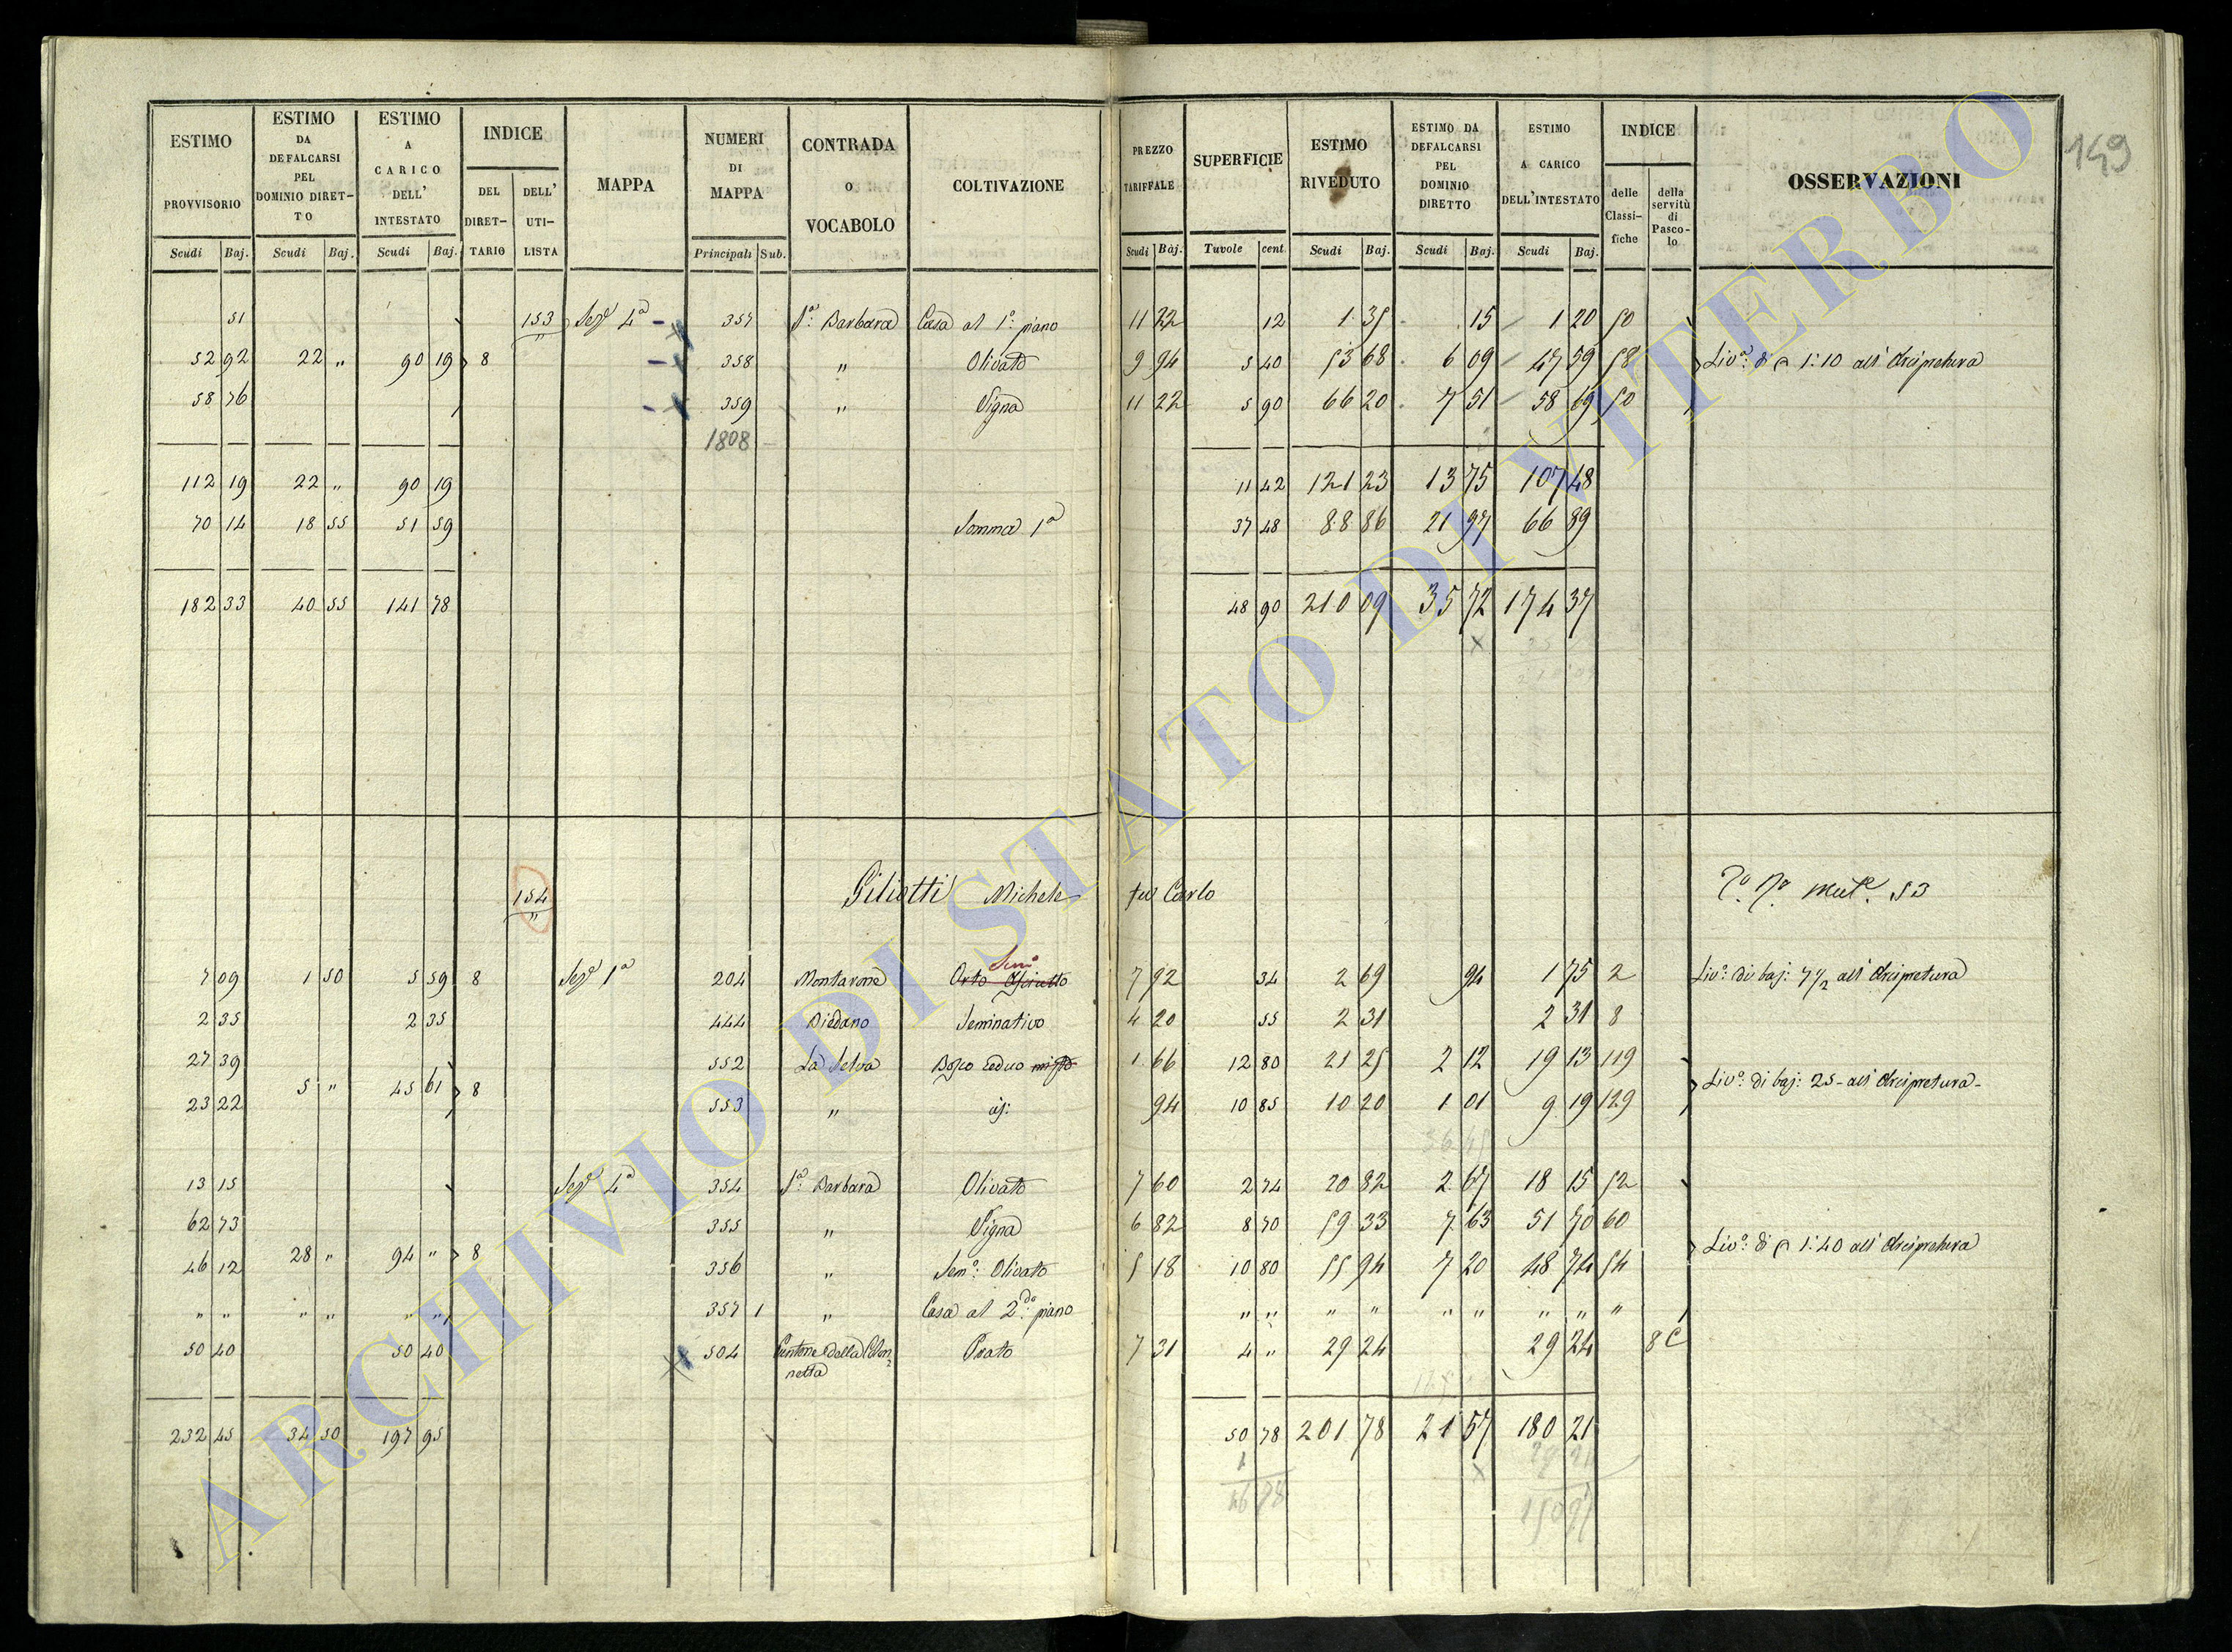 149
ESTIMO PROVVISORIO Scudi Baj. ESTIMO DA DEFALCARSI PEL DOMINIO DIRETTO Scudi Baj. ESTIMO A CARICO DELL' INTESTATO Scudi Baj. INDICE DEL DIRETTARIO DELL' UTILISTA MAPPA NUMERI DI MAPPA Principali Sub. CONTRADA O VOCABOLO COLTIVAZIONE PREZZO TARIFFALE Scudi Baj. SUPERFICIE Tavole cent ESTIMO RIVEDUTO Scudi Baj. ESTIMO DA DEFALCARSI PEL DOMINIO DIRETTO Scudi Baj. ESTIMO A CARICO DELL'INTESTATO Scudi Baj. INDICE delle Classifiche della servitù di Pascolo OSSERVAZIONI
51 153 Sez.e 4a 357 Sa: Barbara Casa al 1o: piano 11 22 12 1 35 15 1 20 50
52 92 22 " 90 19 8 358 " Olivato 9 94 5 40 53 68 6 09 47 59 58 Livo: di 1:10 all' Arcipretura
58 76 359 " Vigna 11 22 5 90 66 20 7 51 58 69 50
1808
112 19 22 " 90 19 11 42 121 23 13 75 107 48
70 14 18 55 51 59 Somma 1a 37 48 88 86 21 97 66 89
182 33 40 55 141 78 48 90 210 09 35 72 174 37
154 " Giliotti Michele fu Carlo 53
7 09 1 50 5 59 8 Sez.e 1a 204 Montarone Orto 7 92 34 2 69 94 1 75 2 Livo: di baj: 7 1/2 all' Arcipretura
2 35 2 35 444 Biedano Seminativo 4 20 55 2 31 2 31 8
27 39 552 La Selva Bosco Ceduo misto 1 66 12 80 21 25 2 12 19 13 119
5 " 45 61 8 Livo: di baj: 25 - all' Arcipretura -
23 22 553 " 94 10 85 10 20 1 01 9 19 129
13 15 Sez.e 4a 354 Sa: Barbara Olivato 7 60 2 74 20 82 2 67 18 15 52
62 73 355 " Vigna 6 82 8 70 59 33 7 63 51 70 60
28 " 94 " 8 Livo: di 1:40 all' Arcipretura
46 12 356 " Semo: Olivato 5 18 10 80 55 94 7 20 48 74 54
" " " " " " 357 1 " Casa al 2do: piano " " " " " " " " "
50 40 50 40 504 della Colonnetta Prato 7 31 4 " 29 24 29 24 8 C
232 45 34 50 197 95 50 78 201 78 21 57 180 21
46 78
150 97
ARCHIVIO DI STATO DI VITERBO